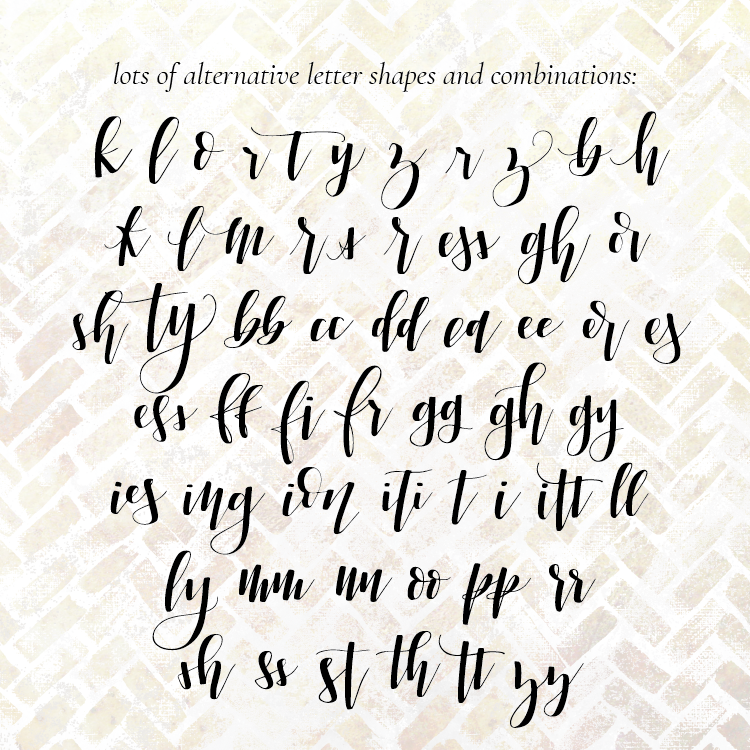 lots of alternative letter shapes and combinations:
k l o r t y z r z b h
k l m r s r ess gh or
sh ty bb cc dd ea ee er es
ess ff fi fr gg gh gy
ies ing ion iti t i itt ll
ly mm nn oo pp rr
sh ss st th tt yy